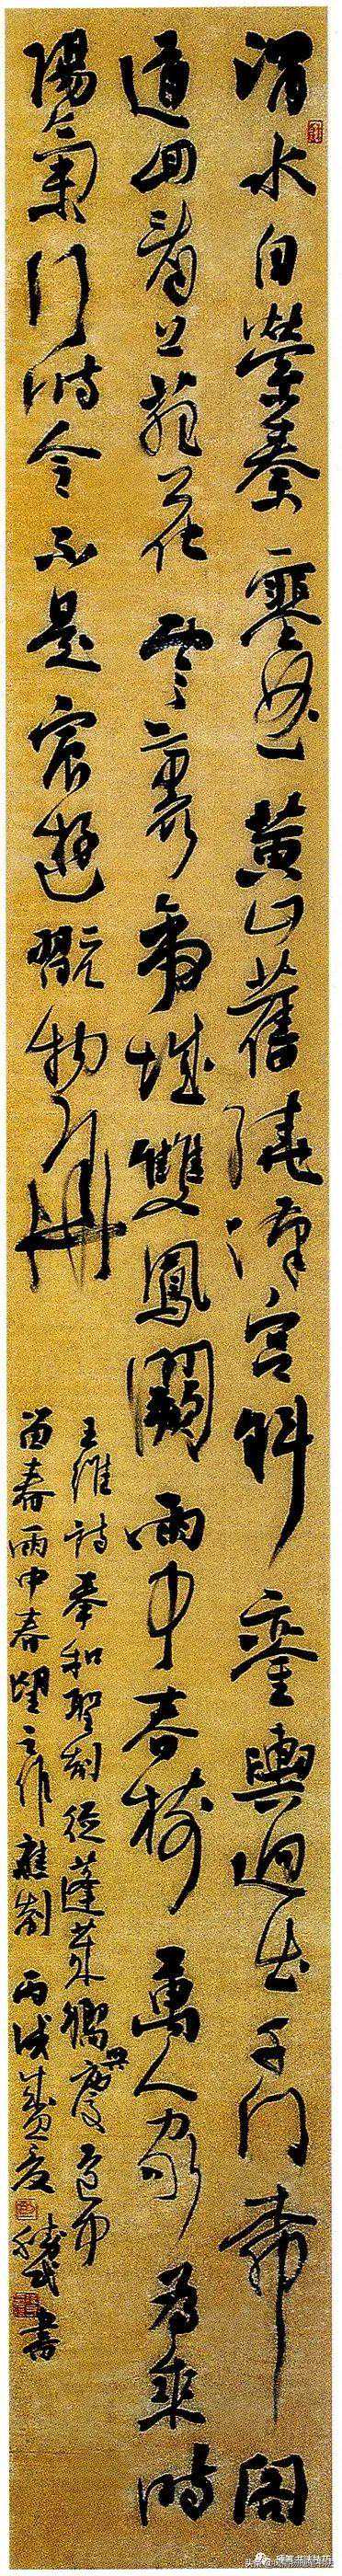 渭水自縈秦塞曲黃山舊繞漢宮斜鑾輿迥出千門柳閣
道回看上苑花雲裏帝城雙鳳闕雨中春樹萬人家為乘時
陽氣行時令不是宸遊翫物華
王維詩奉和聖制從蓬萊向興慶道中
留春雨中春望之作應制丙戌盛夏書